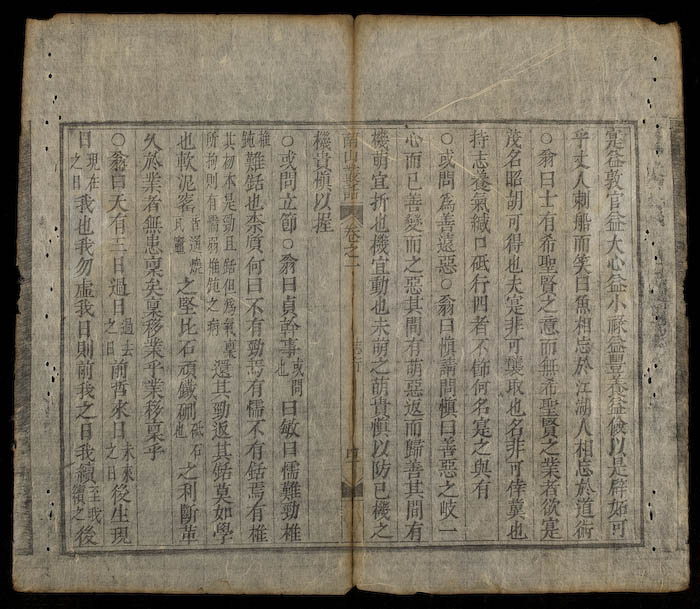 寔益敦官益大心益小祿益豐養益儉以是辟如可
乎丈人剌船而笑曰魚相忘於江湖人相忘於道術
○翁曰士有希聖賢之意而無希聖賢之業者欲寔
茂名昭胡可得也夫寔非可襲取也名非可倖冀也
持志養氣緘口砥行四者不飾何名寔之與有
○或問為善遠惡○翁曰慎請問慎曰善惡之岐一
心而已善變而之惡其間有萌惡返而歸善其間有
機萌宜折也機宜動也未萌之萌貴慎以防已機之
南山叢語 卷之一 四
機貴慎以握
○或問立節○翁曰貞幹事也或問曰敏曰懦難勁椎
椎鈍難銛也柰廣何曰不有勁焉有懦不有銛焉有椎
其初本是勁且銛但為氣稟所拘則有懦弱椎鈍之病還其勁返其銛莫如學
也軟泥窰之堅比石頑鐵硎砥石也之利斷革
久於業者無患稟矣稟移業乎業移稟乎
○翁曰天有三日過日過去之日前哲來日未來之日後生現
日現在之日我也我勿虛我日則前我之日我續至或續之後